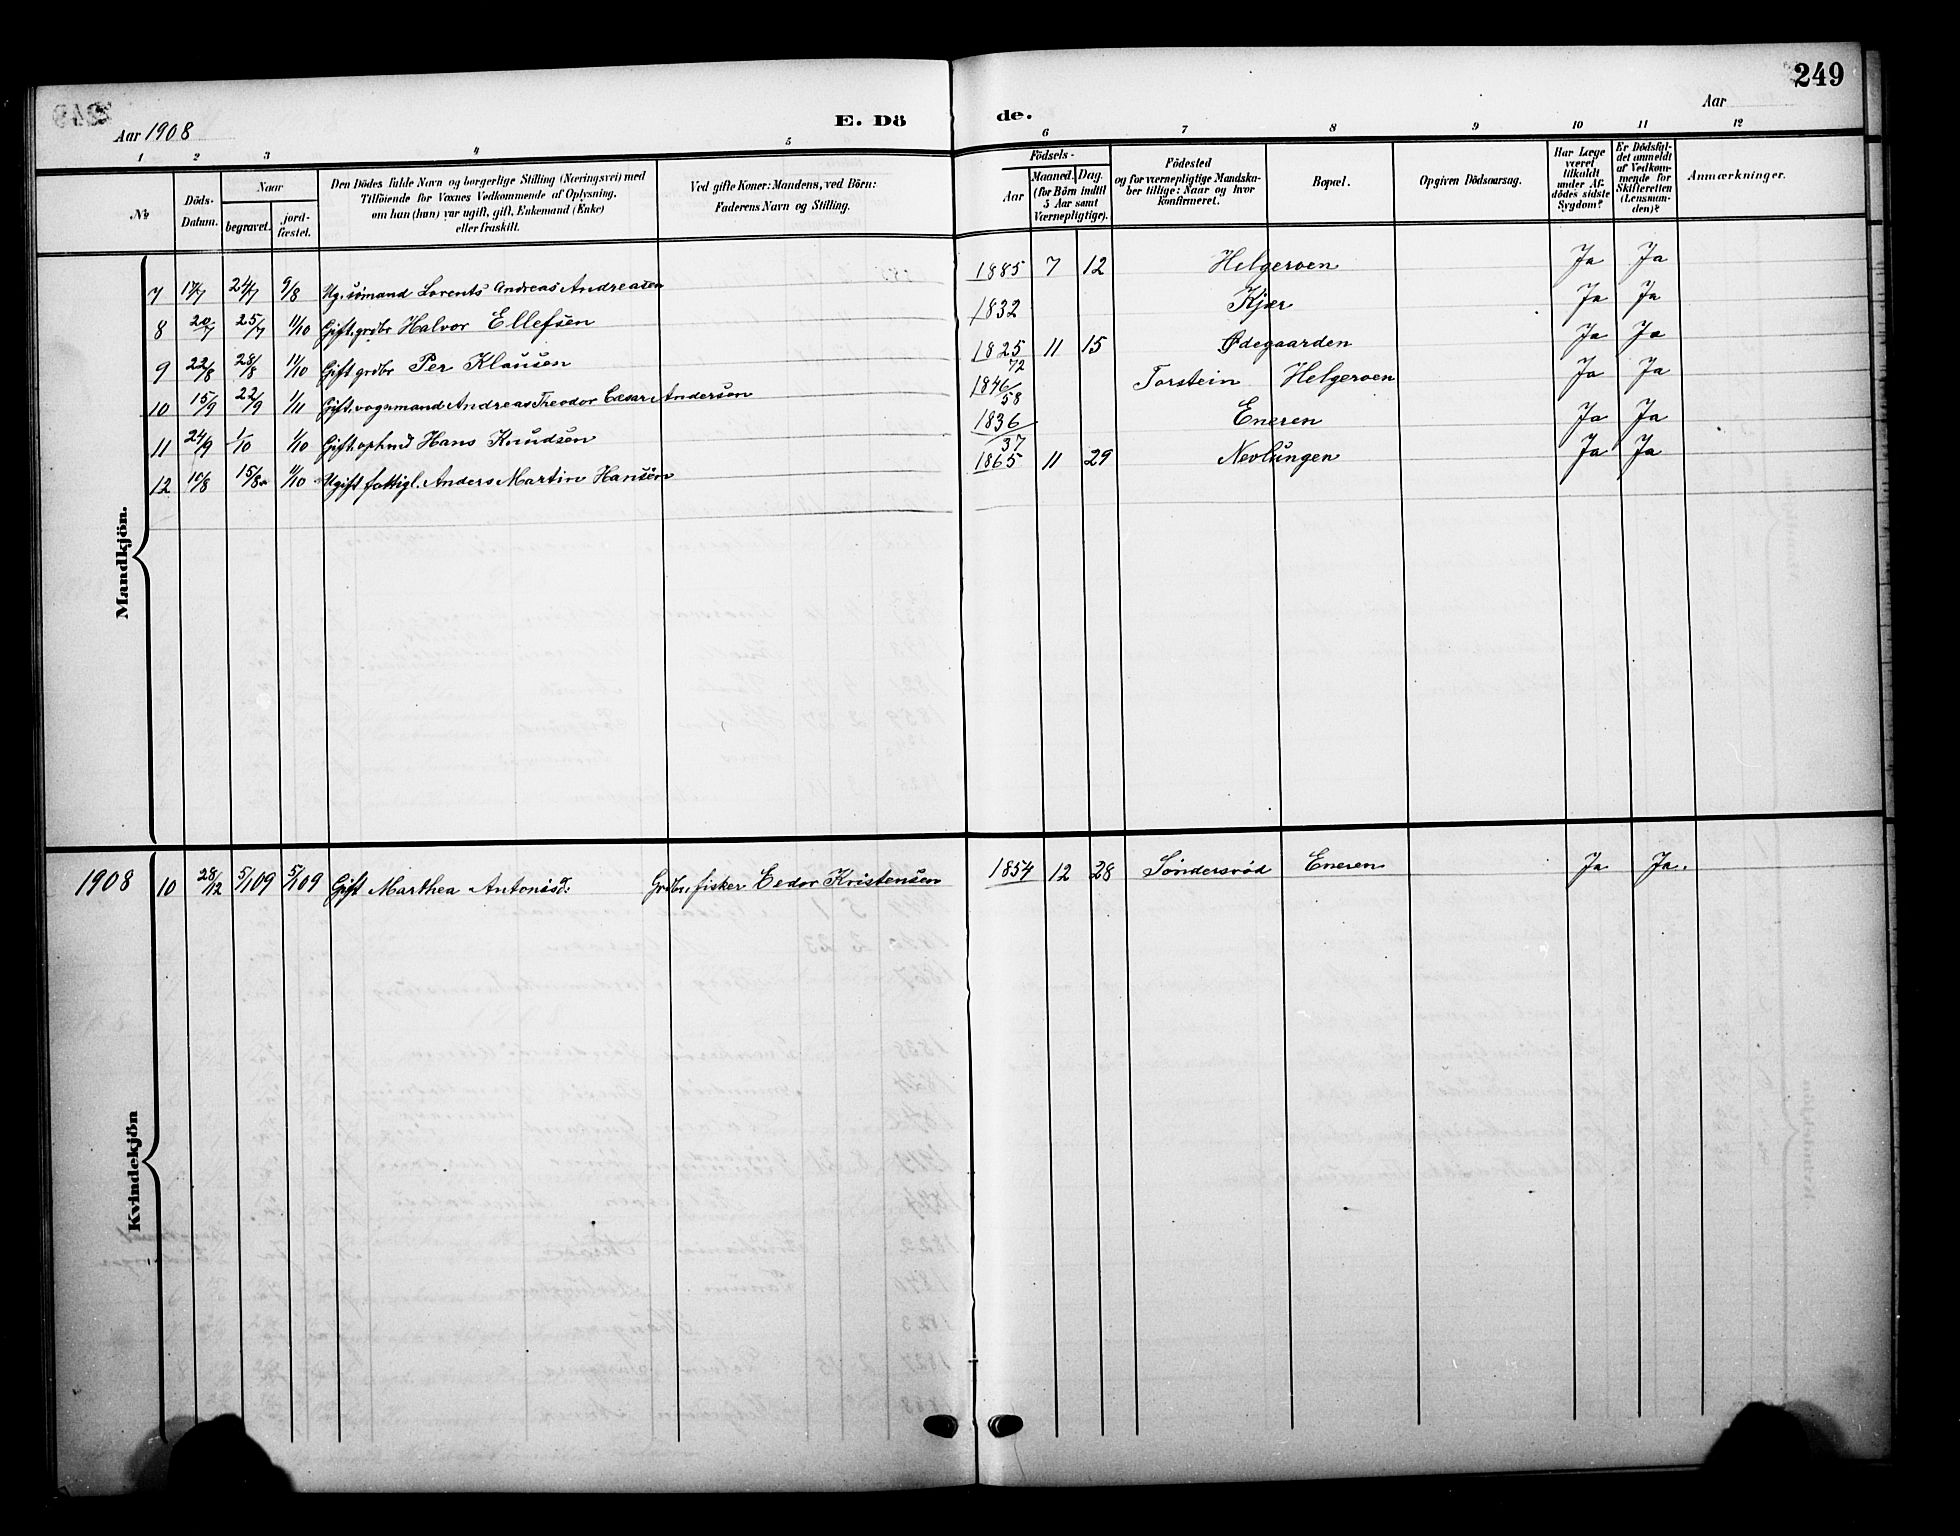 249
Aar 1908
E. Dö de.
Aar
1 2 3 4 5 6 7 8 9 10 11 12
No
Döds-Datum.
Naar
begravet.
jord-fæstet.
Den Dödes fulde Navn og borgerlige Stilling (Næringsvei) med
Tilföiende for Voxnes Vedkommende af Oplysning,
om han (hun) var ugift, gift, Enkemand (Enke)
eller fraskilt.
Ved gifte Koner: Mandens, ved Börn:
Faderens Navn og Stilling.
Födsels-
Aar
Maaned. Dag.
(for Börn indtil
5 Aar samt
Værnepligtige).
Födested
og for værnepligtige Mandska-
ber tillige: Naar og hvor
konfirmeret.
Bopæl.
Opgiven Dödsaarsag.
Har Læge
været
tilkaldt
under Af-
dödes sidste
Sygdom?
Er Dödsfal-
det anmeldt
af Vedkom-
mende for
Skifteretten
(Lensman-
den)?
Anmærkninger.
Mandkjön.
7 17/7 24/7 9/8 Ug. sømand Lorents Andreas Andreasen 1885 7 12 Helgeroen Ja Ja
8 20/7 25/7 11/10 Gift. grdbr Halvor Ellefsen 1832 Kjær Ja Ja
9 22/8 28/8 11/10 Gift grdbr Per Klausen 1825 11 15 Ødegaarden Ja Ja
10 15/9 22/9 1/11 Gift. vognmand Andreas Theodor Cæsar Andersen 1846 72/58 Torstein Helgeroen Ja Ja
11 24/9 1/10 1/10 Gift. ophmd Hans Knudsen 1836 Eneren Ja Ja
12 10/8 15/8 11/10 Ugift fattigl. Anders Martin Hansen 37 1865 11 29 Nevlungen Ja Ja
Kvindekjön
1908 10 28/12 5/1 09 5/1 09 Gift Marthea Antonisd. Grdbr. fisker Eedor Kristensen 1854 12 28 Søndersrød Eneren Ja Ja.